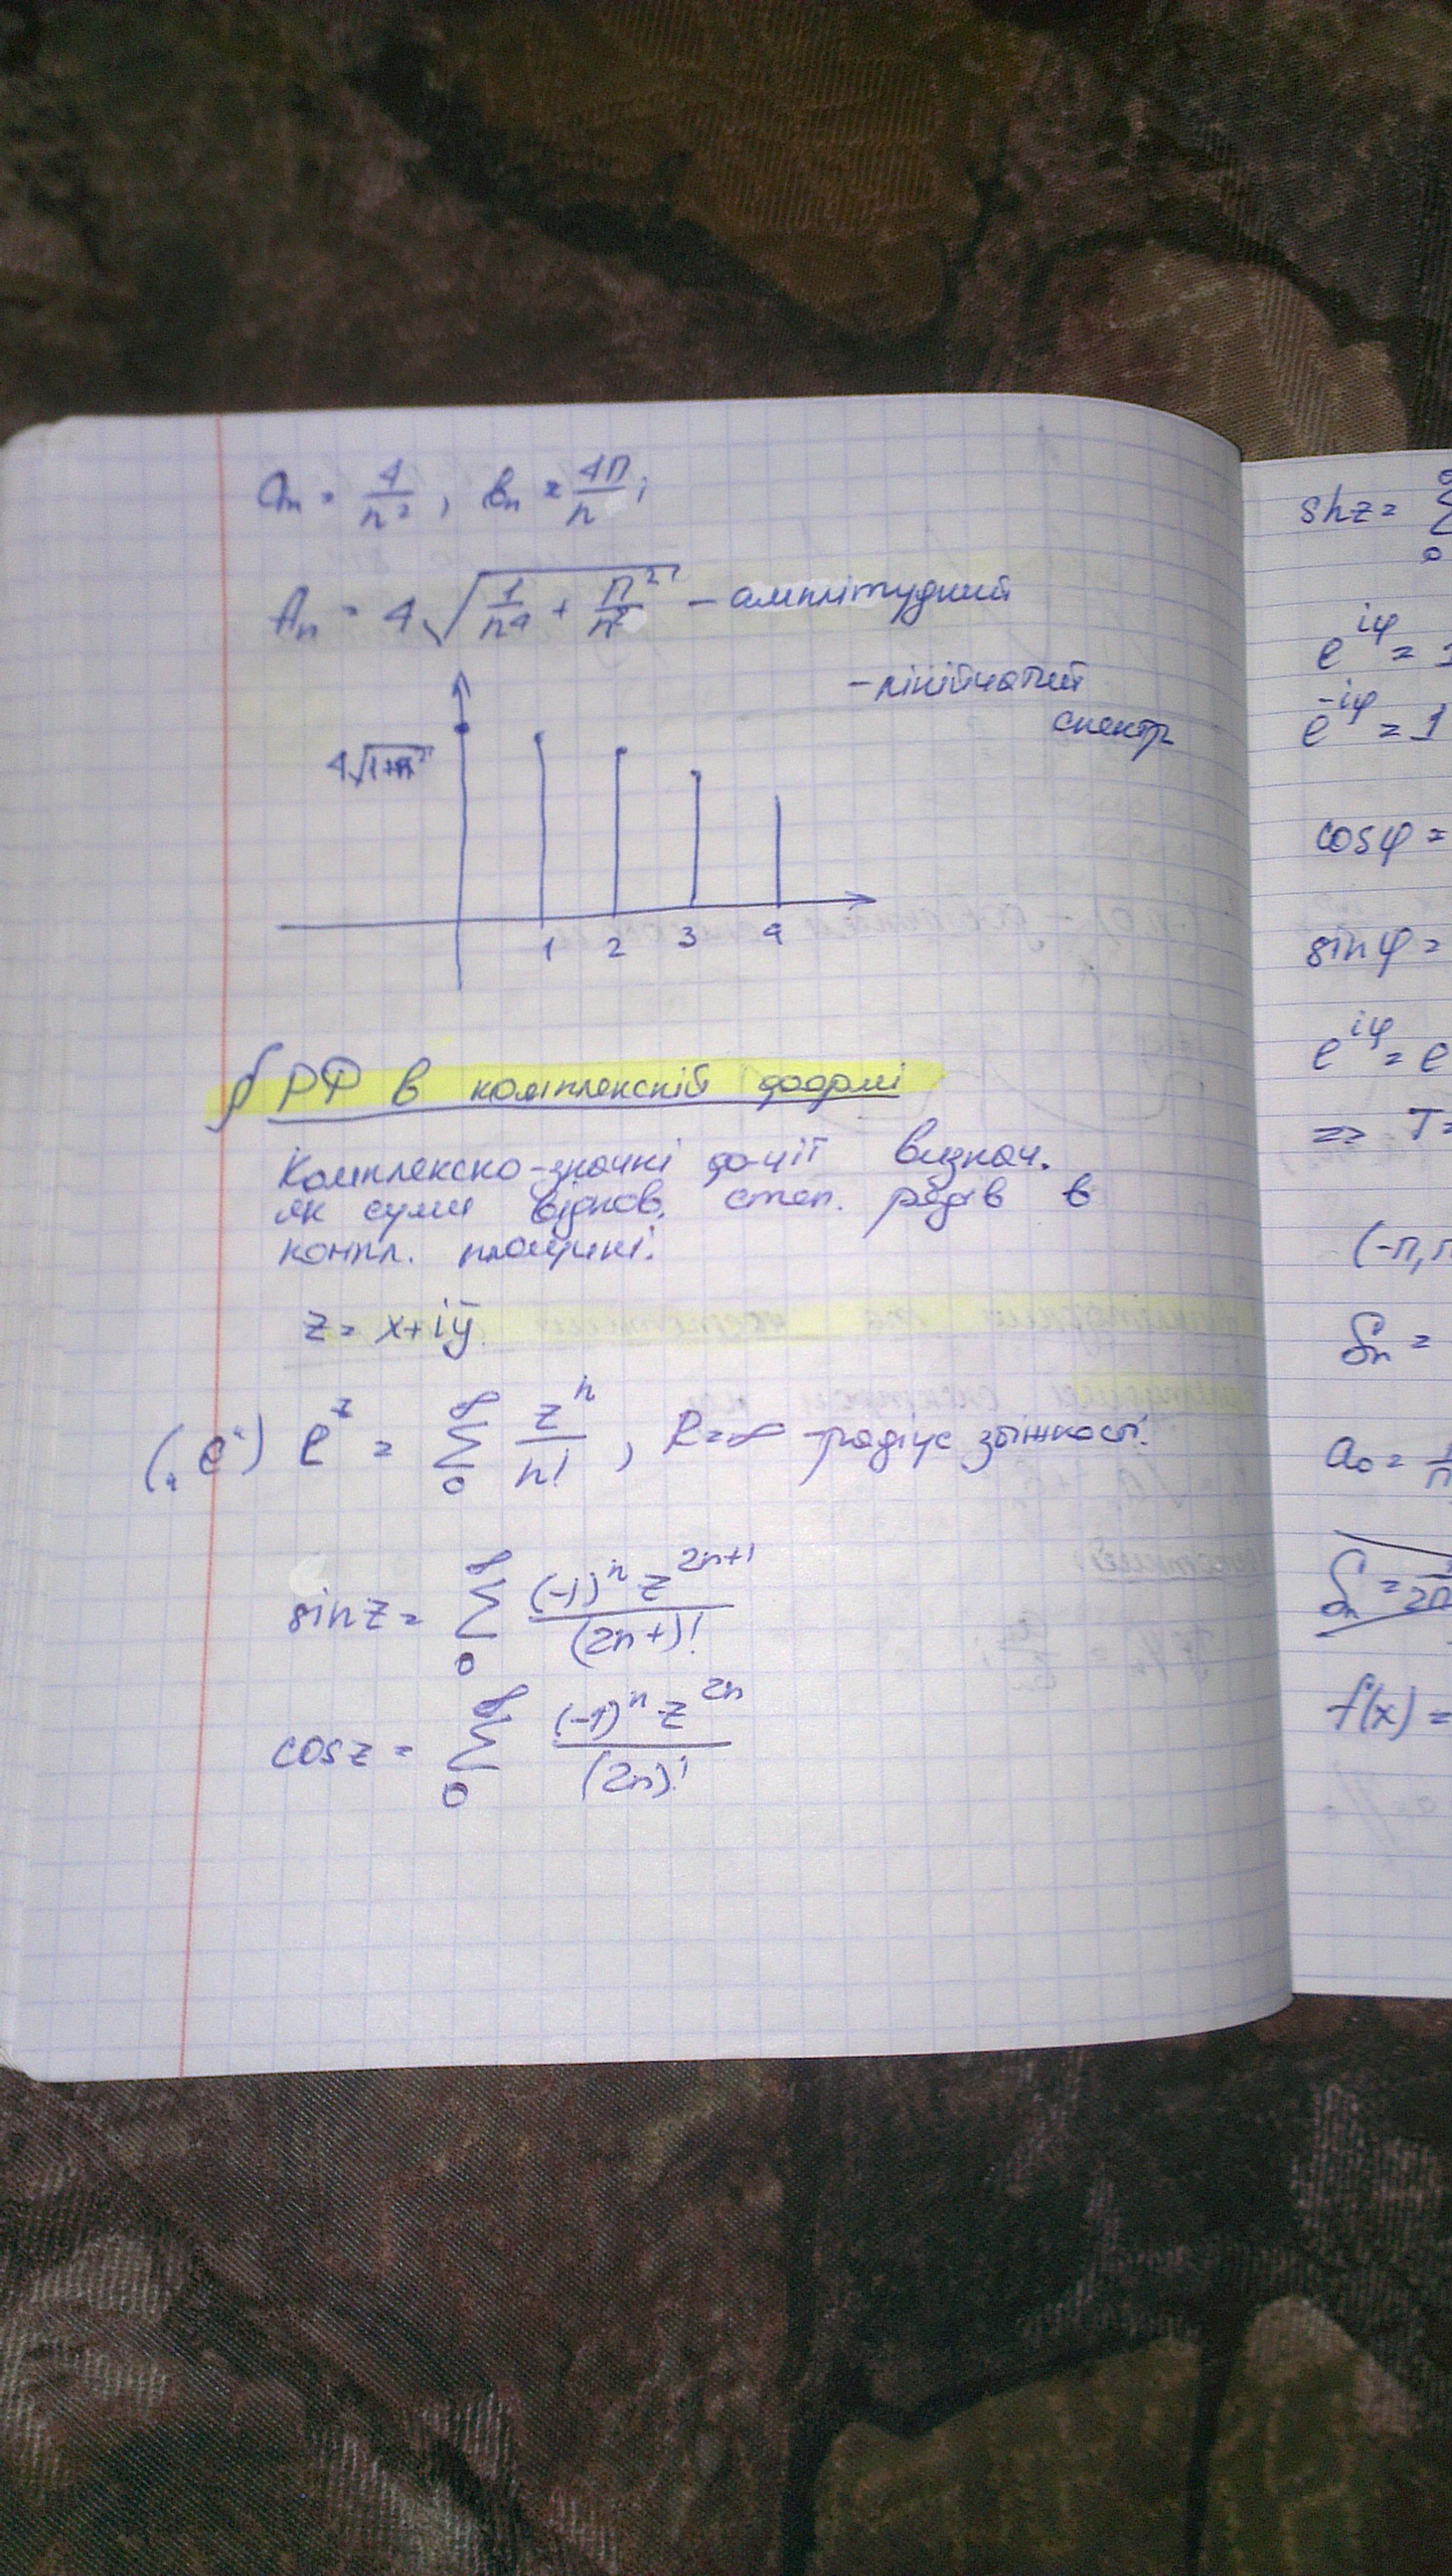 aₙ = 4/n², bₙ = 4π/n;
Aₙ = 4√(1/n⁴ + π²/n²) – амплітудний
– лінійчатий
спектр
4√(1+π²)
1 2 3 4
§ РФ в комплексній формі
Комплексно-значні ф-ції визнач.
як суми відпов. степ. рядів в
компл. площині.
z = x+iy
("e") e^z = ∑₀^∞ zⁿ/n!, R=∞ – радіус збіжності.
sin z = ∑₀^∞ (-1)ⁿ z^(2n+1)/(2n+)!
cos z = ∑₀^∞ (-1)ⁿ z^(2n)/(2n)!
sh z = ∑₀
e^(iφ) = 1
e^(-iφ) = 1
cos φ =
sin φ =
e^(iφ) = e
=> T=
(-π, π
Sₙ =
a₀ = 1/π
Sₙ = 1/2π
f(x) =